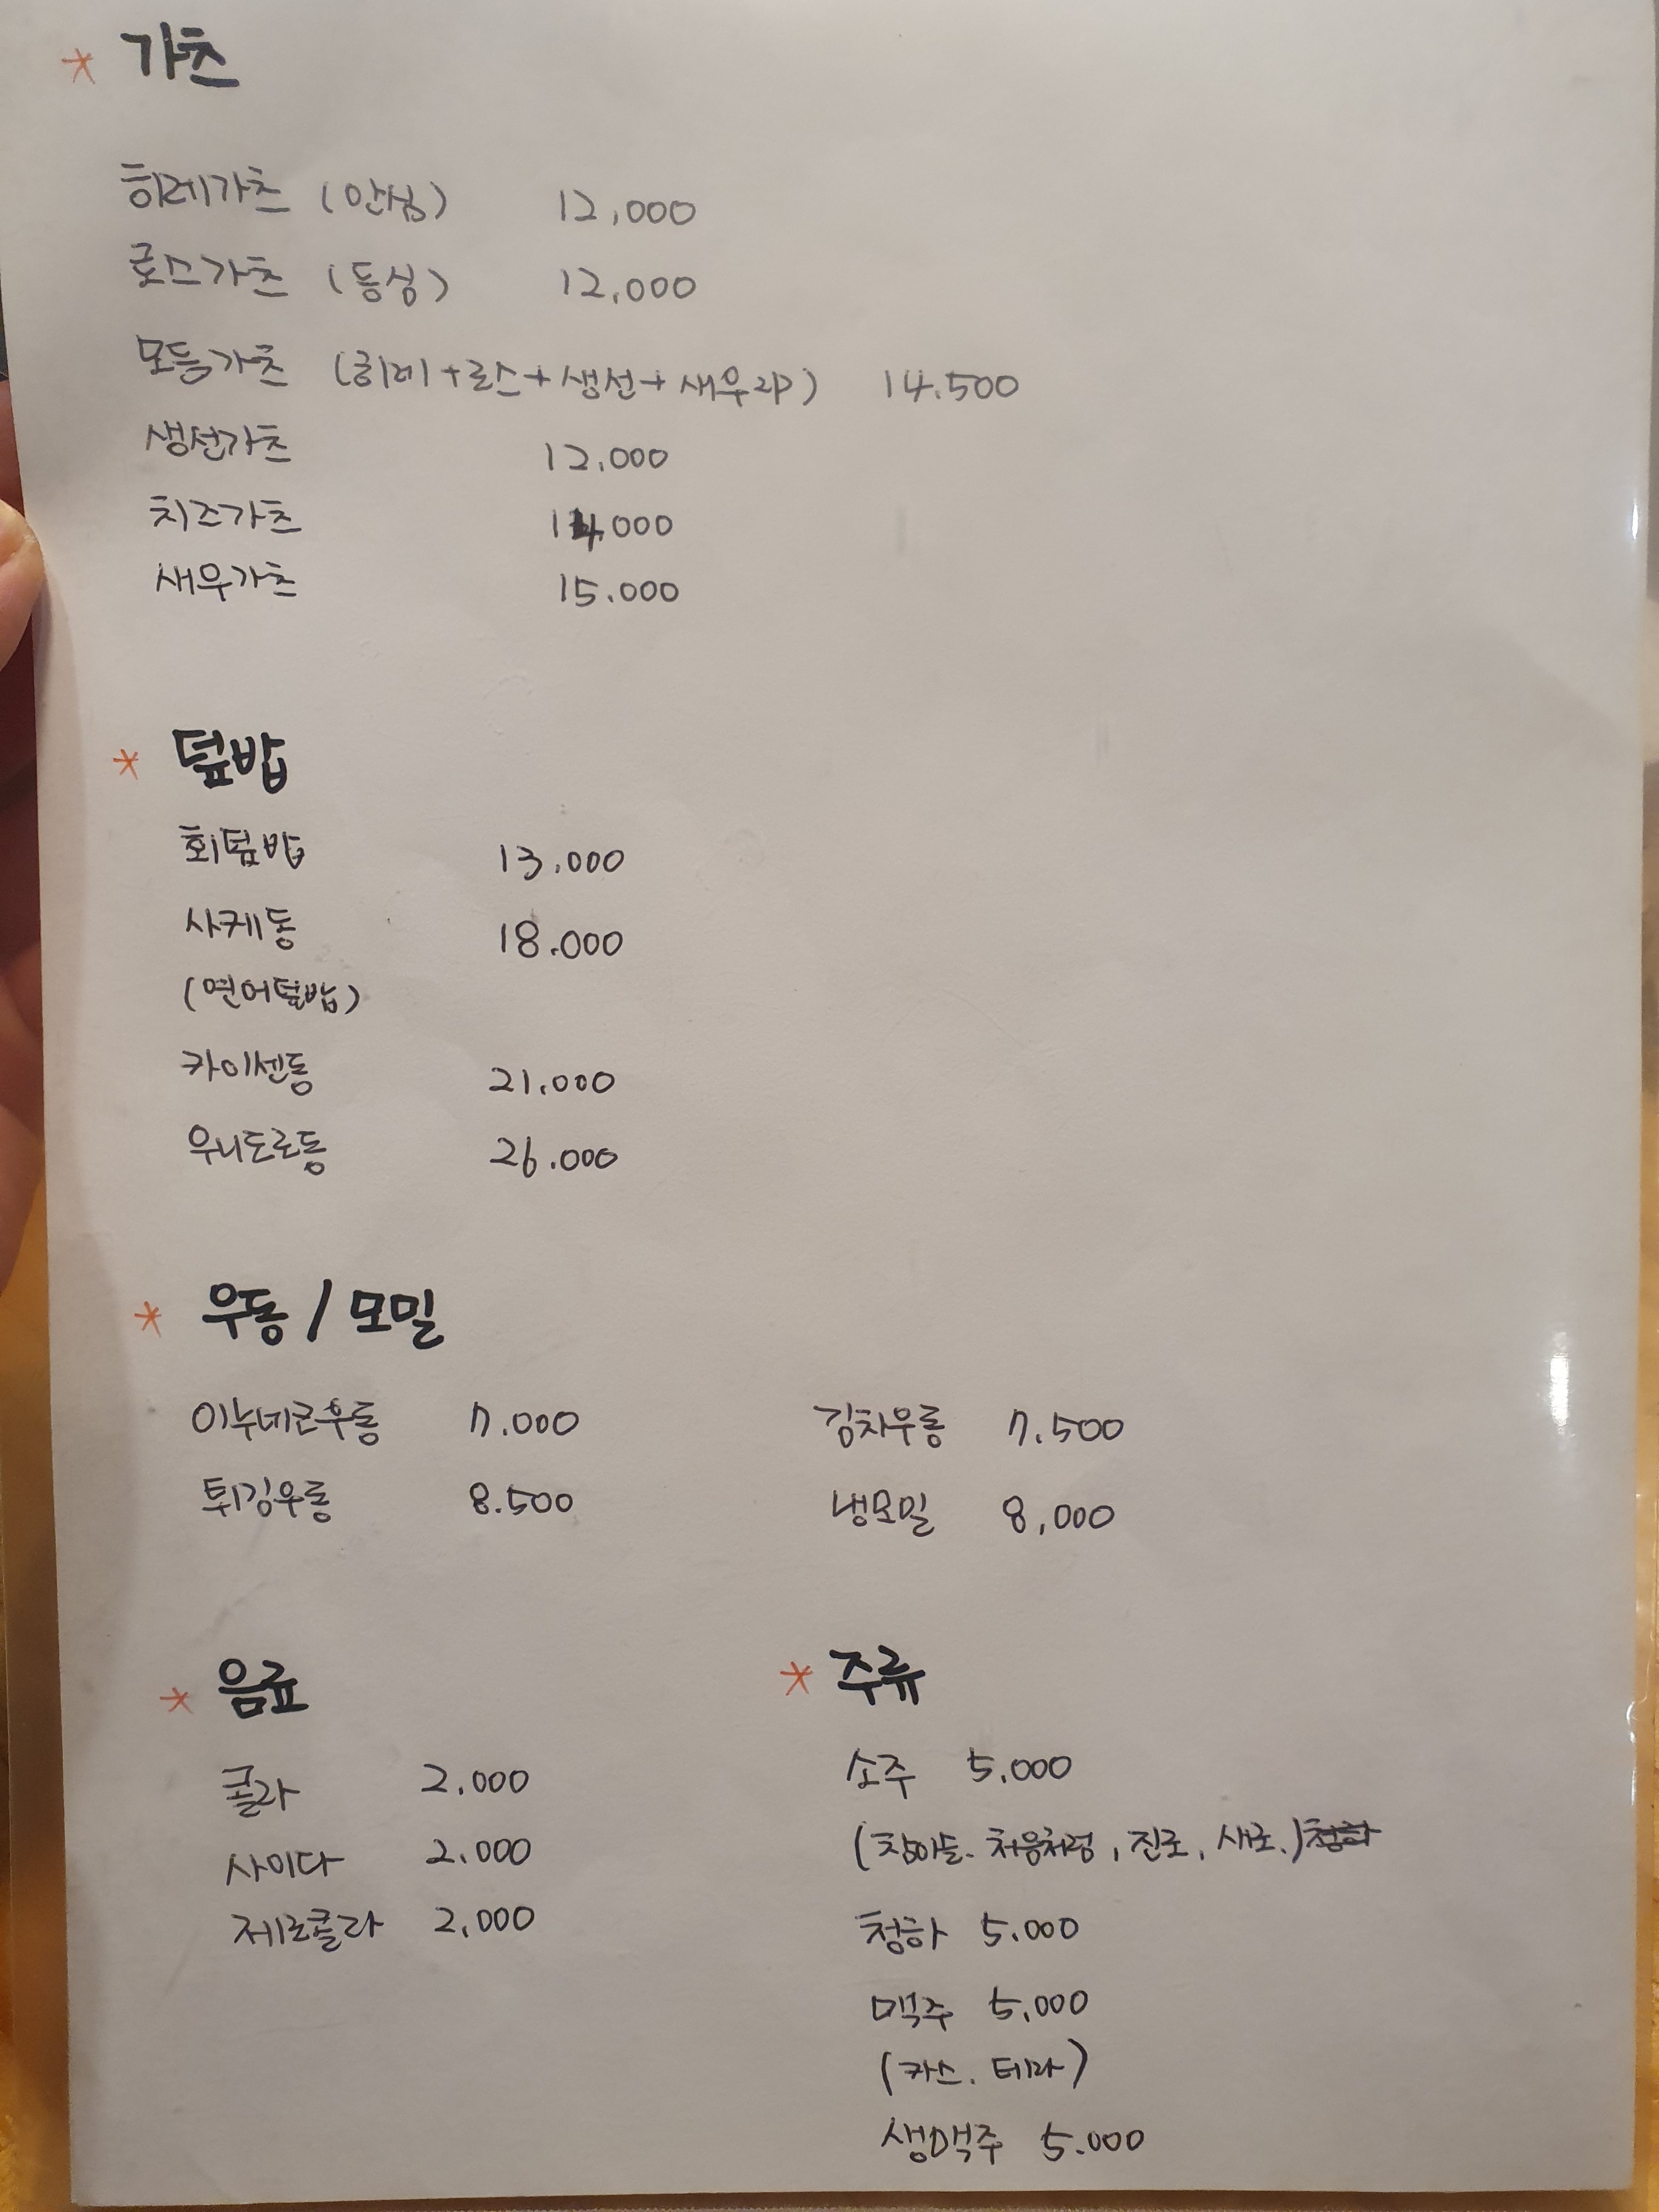 * 가츠
히레가츠 (안심) 12,000
로스가츠 (등심) 12,000
모듬가츠 (히레+로스+생선+새우과) 14.500
생선가츠 12.000
치즈가츠 14.000
새우가츠 15.000
* 덮밥
회덮밥 13.000
사케동 18.000
(연어덮밥)
카이센동 21.000
우니도로동 26.000
* 우동 / 모밀
이누네코우동 7.000
튀김우동 8.500
김치우동 7.500
냉모밀 8,000
* 음료
콜라 2.000
사이다 2.000
제로콜라 2,000
* 주류
소주 5.000
(참이슬. 처음처럼, 진로, 새로.) 청하
청하 5.000
맥주 5,000
(카스. 테라)
생맥주 5.000